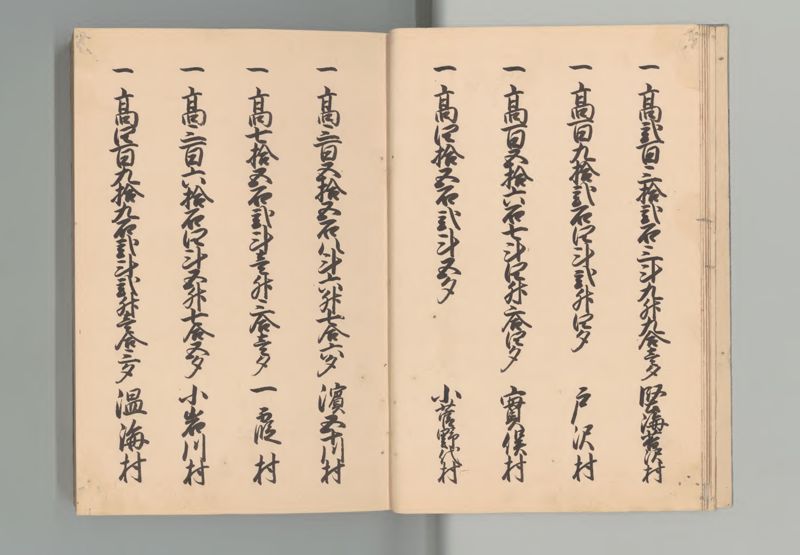 一 高弐百三拾弐石三斗九升九合壱夕 堅海苔沢村
一 高百九拾弐石四斗弐升四夕 戸沢村
一 高百五拾六石七斗四升二合四夕 實俣村
一 高四拾五石弐斗五夕 小菅野代村
一 高三百五拾五石八斗六升七合六夕 濱五十川村
一 高七拾五石弐斗壱升二合壱夕 一霞村
一 高三百六拾石四斗五升七合五夕 小岩川村
一 高四百九拾九石弐斗弐升壱合三夕 温海村